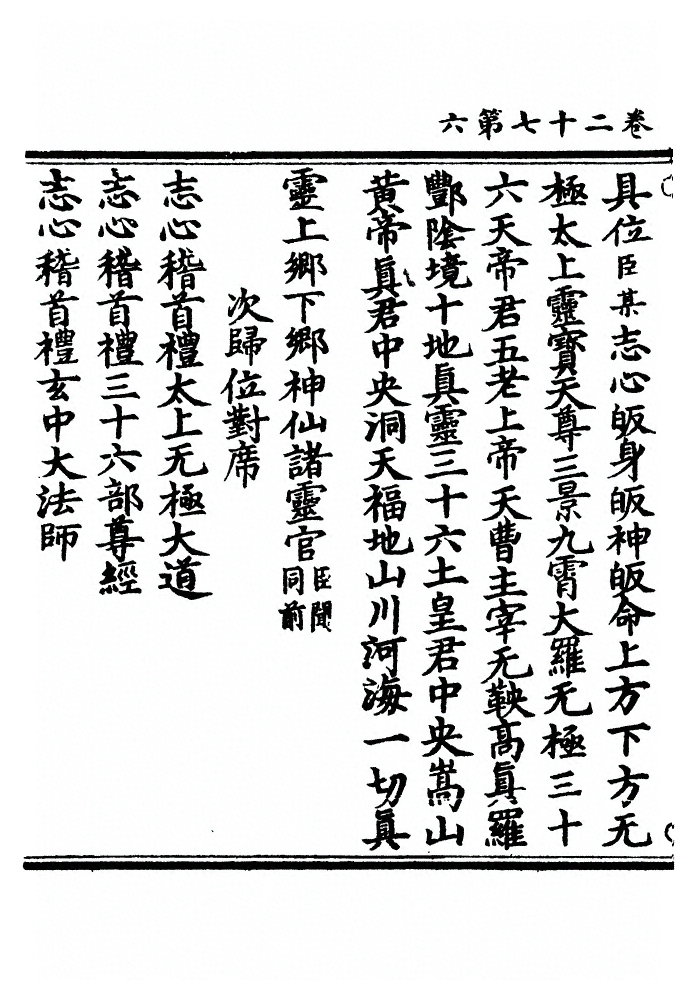 卷二十七第六
具位臣某志心皈身皈神皈命上方下方无
極太上靈寶天尊三景九霄大羅无極三十
六天帝君五老上帝天曹主宰无鞅高眞羅
酆陰境十地眞靈三十六土皇君中央嵩山
黃帝眞君中央洞天福地山川河海一切眞
靈上鄉下鄉神仙諸靈官臣聞同前
次歸位對席
志心稽首禮太上无極大道
志心稽首禮三十六部尊經
志心稽首禮玄中大法師